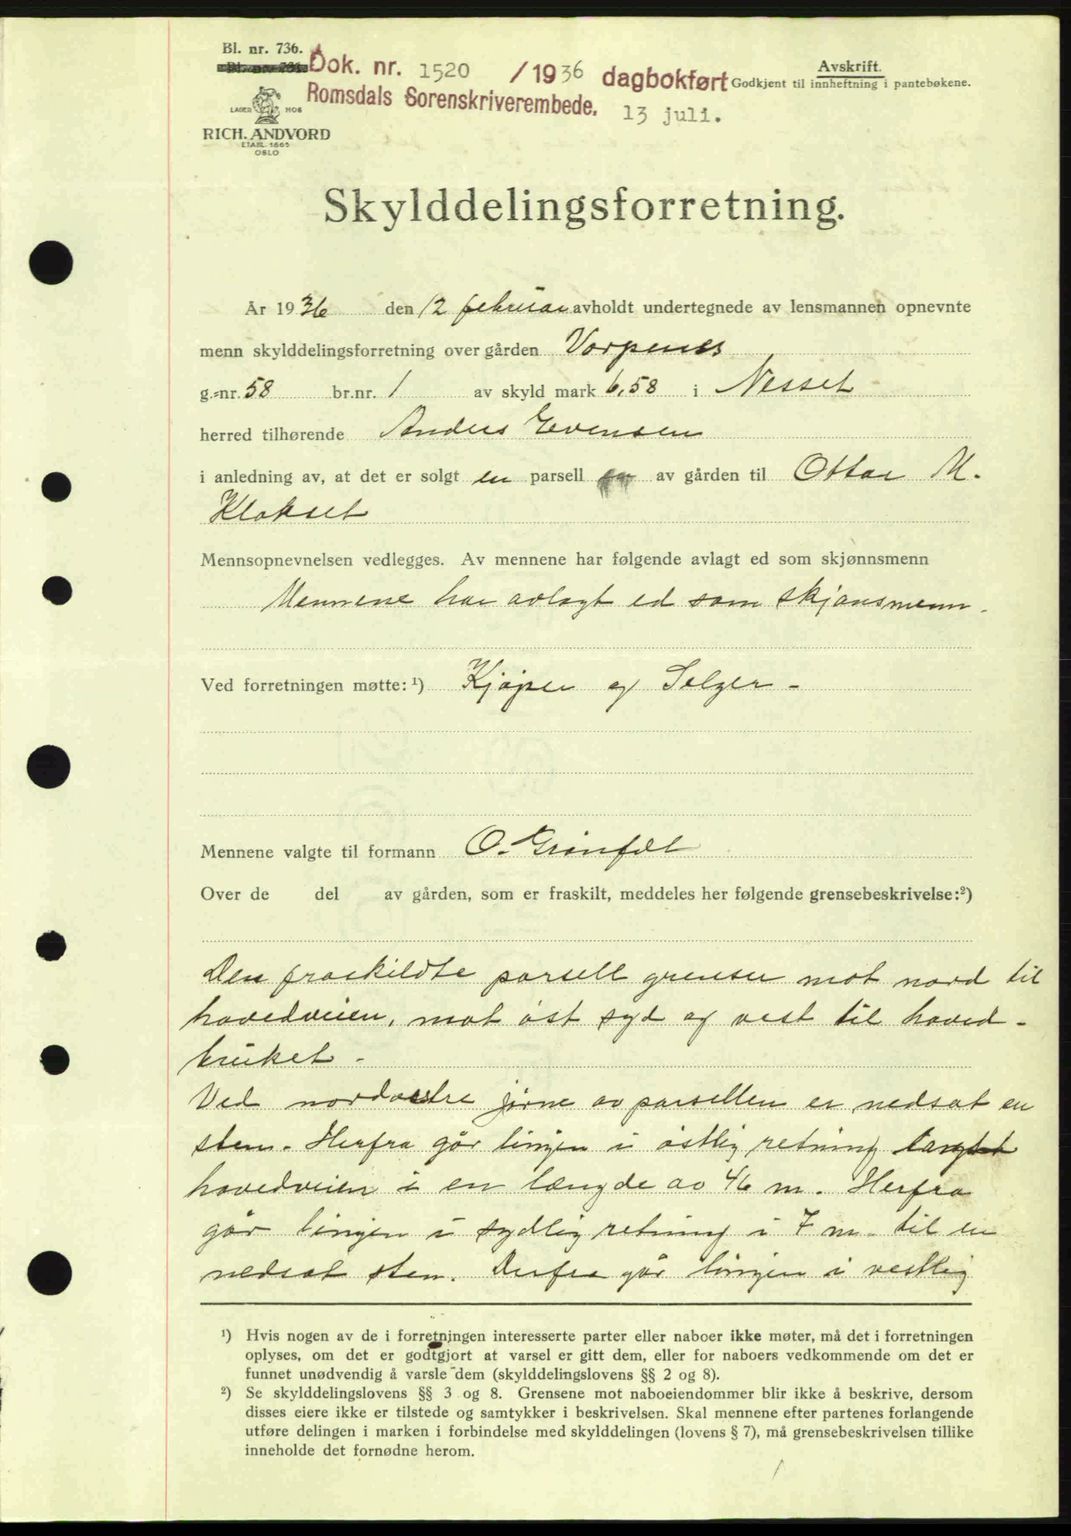 Bl. nr. 736.
Dok. nr. 1520 /1936 dagbokført
Romsdals Sorenskriverembede. 13 juli.
Avskrift.
Godkjent til innheftning i pantebøkene.
LAGER HOS
RICH. ANDVORD
ETABL. 1865
OSLO
Skylddelingsforretning.
År 1936 den 12 februar avholdt undertegnede av lensmannen opnevnte
menn skylddelingsforretning over gården Vorpenes
g.-nr. 58 br.nr. 1 av skyld mark 6,58 i Nesset
herred tilhørende Anders Evensen
i anledning av, at det er solgt en parsell av gården til Ottar M.
Klokset
Mennsopnevnelsen vedlegges. Av mennene har følgende avlagt ed som skjønnsmenn
Mennene har avlagt ed som skjønsmenn.
Ved forretningen møtte: ¹) Kjøper og Selger -
Mennene valgte til formann O. Grønfål
Over de del av gården, som er fraskilt, meddeles her følgende grensebeskrivelse:²)
Den fraskildte parsell grenser mot nord til
hovedveien, mot øst syd og vest til hoved-
bruket -
Ved nordvestre jørne av parsellen er nedsat en
sten. Herfra går linjen i østlig retning langst
hovedveien i en længde av 46 m. Herfra
går linjen i sydlig retning i 7 m. til en
nedsat sten. Derfra går linjen i vestlig
¹) Hvis nogen av de i forretningen interesserte parter eller naboer ikke møter, må det i forretningen
oplyses, om det er godtgjort at varsel er gitt dem, eller for naboers vedkommende om det er
funnet unødvendig å varsle dem (skylddelingslovens §§ 2 og 8).
²) Se skylddelingslovens §§ 3 og 8. Grensene mot naboeiendommer blir ikke å beskrive, dersom
disses eiere ikke er tilstede og samtykker i beskrivelsen. Skal mennene efter partenes forlangende
utføre delingen i marken i forbindelse med skylddelingen (lovens § 7), må grensebeskrivelsen tillike
inneholde det fornødne herom.